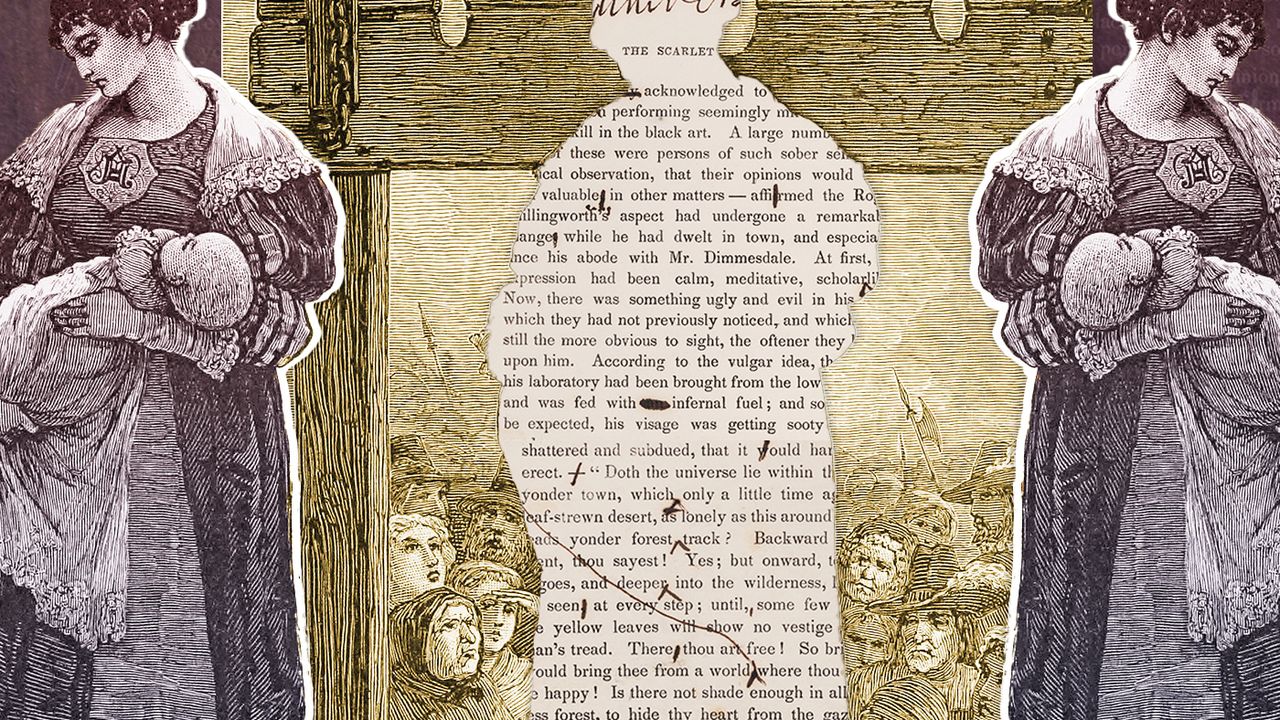 THE SCARLET
acknowledged to
performing seemingly
in the black art. A large
these were persons of such sober
observation, that their opinions would
valuable, in other matters — affirmed the
aspect had undergone a
while he had dwelt in town, and
his abode with Mr. Dimmesdale. At first,
had been calm, meditative,
Now, there was something ugly and evil in his
which they had not previously noticed, and
still the more obvious to sight, the oftener they
upon him. According to the vulgar idea,
his laboratory had been brought from the
and was fed with infernal fuel; and so
be expected, his visage was getting sooty
shattered and subdued, that it would
erect. “Doth the universe lie within
yonder town, which only a little time
desert, as lonely as this around
yonder forest track? Backward
thou sayest! Yes; but onward,
goes, and deeper, into the wilderness,
seen at every step; until, some few
yellow leaves will show no vestige
tread. There thou art free! So
would bring thee from a world where thou
happy! Is there not shade enough in all
forest, to hide thy heart from the
A
A